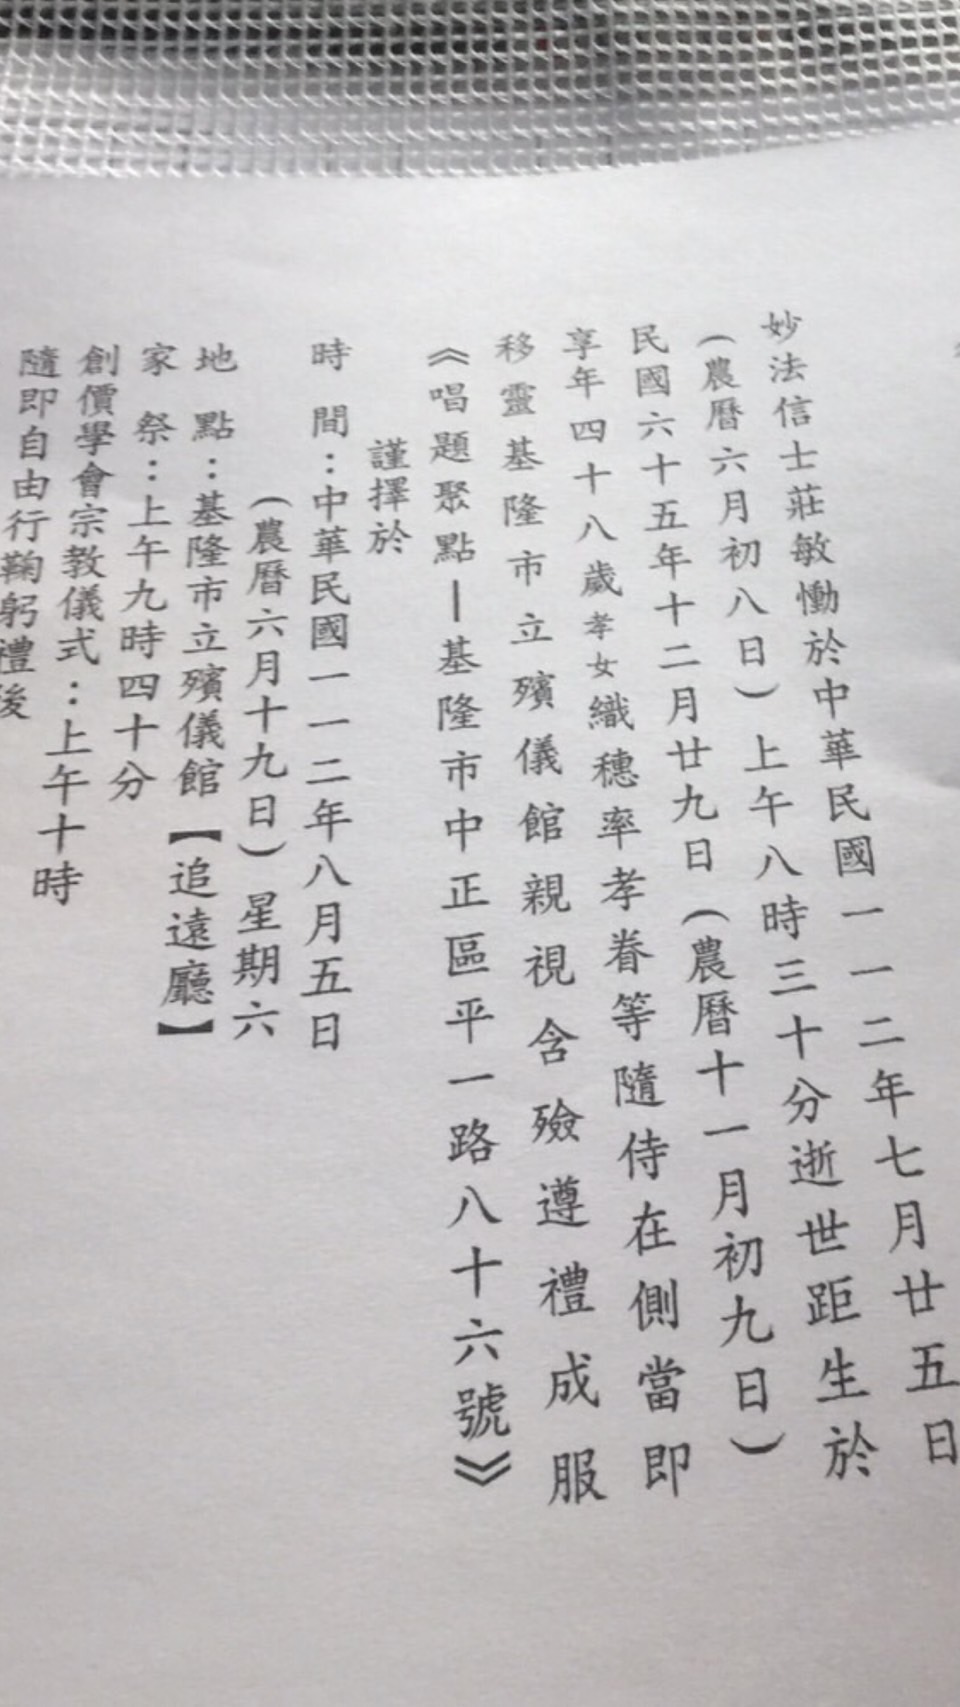 妙法信士莊敏慟於中華民國一一二年七月廿五日
（農曆六月初八日）上午八時三十分逝世距生於
民國六十五年十二月廿九日（農曆十一月初九日）
享年四十八歲孝女織穗率孝眷等隨侍在側當即
移靈基隆市立殯儀館親視含殮遵禮成服
《唱題聚點—基隆市中正區平一路八十六號》
謹擇於
時 間：中華民國一一二年八月五日
（農曆六月十九日）星期六
地 點：基隆市立殯儀館【追遠廳】
家 祭：上午九時四十分
創價學會宗教儀式：上午十時
隨即自由行鞠躬禮後